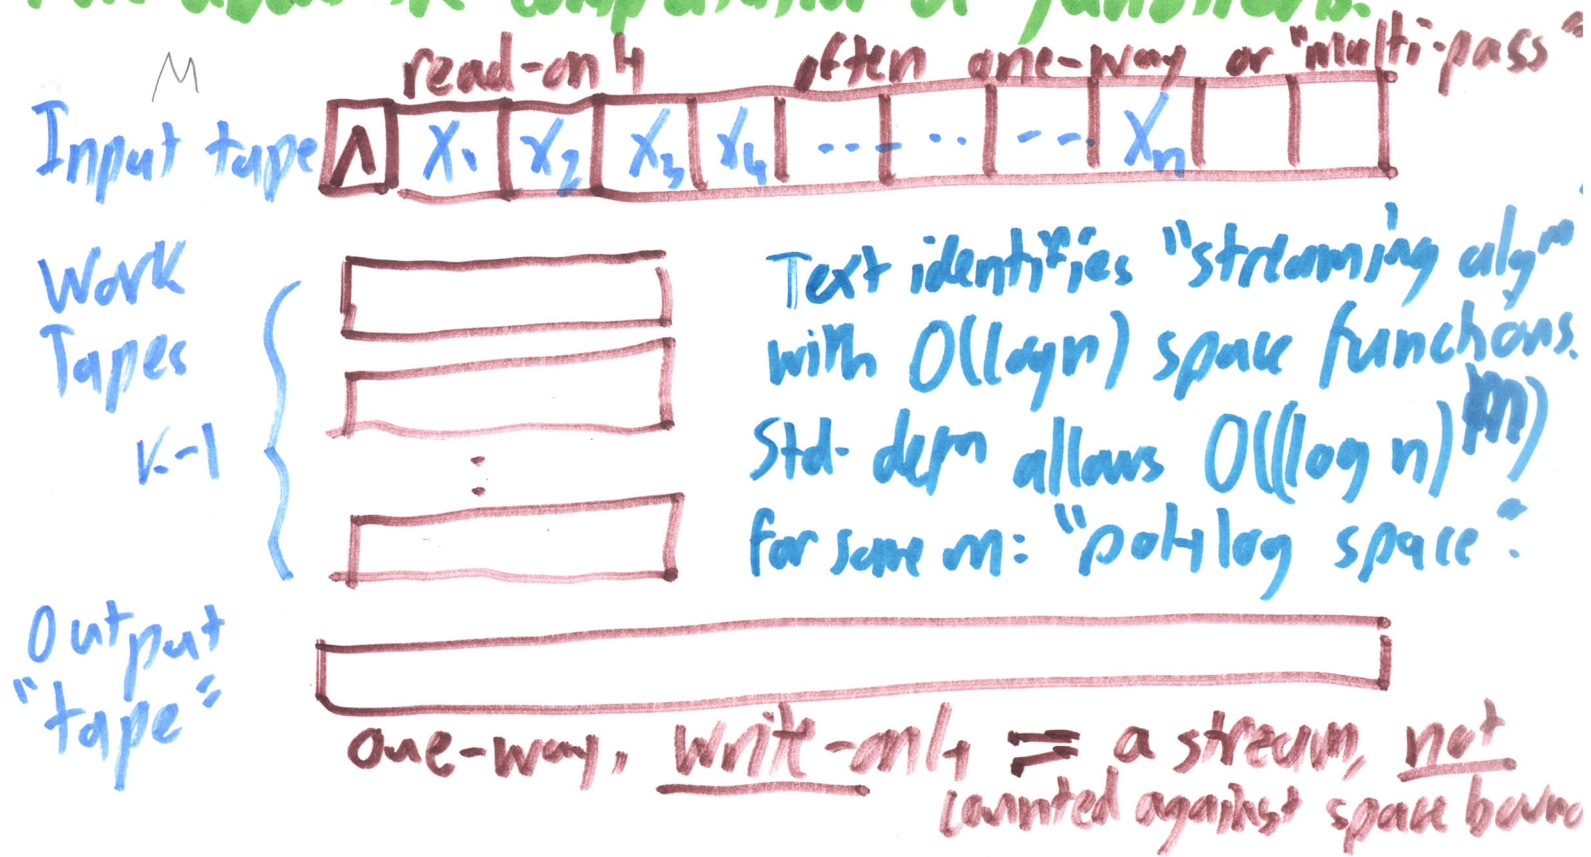 the computation of functions.
M
read-only often one-way or "multi-pass"
Input tape Λ X1 X2 X3 X4 ---- -- -- Xn
Work
Tapes
k-1
Text identifies "streaming algm"
with O(log n) space functions.
Std. defn allows O((log n)^m)
for some m: "polylog space".
:
Output
"tape"
one-way, write-only = a stream, not
counted against space bound